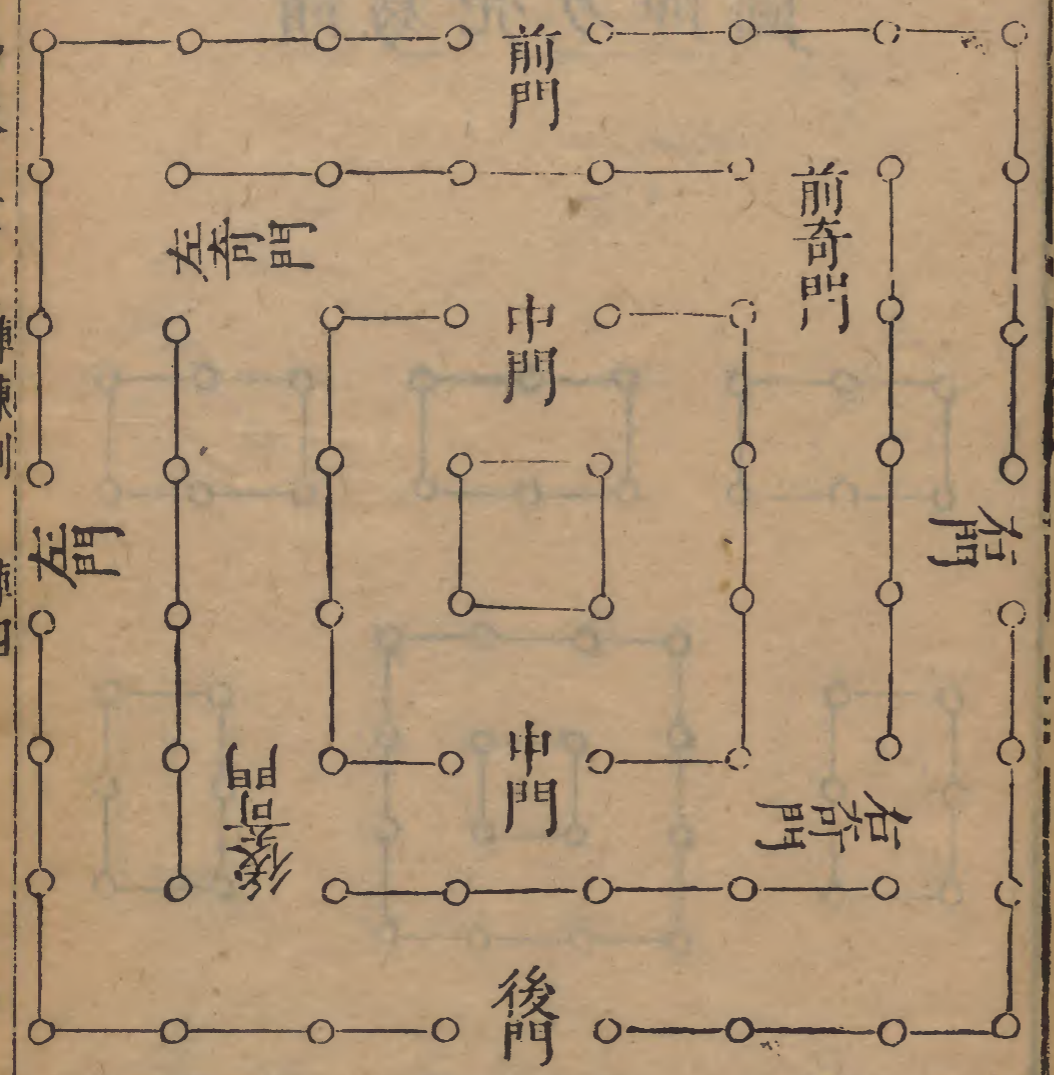 前門
前奇門
左奇門
中門
左門
右門
中門
後奇門
右奇門
後門